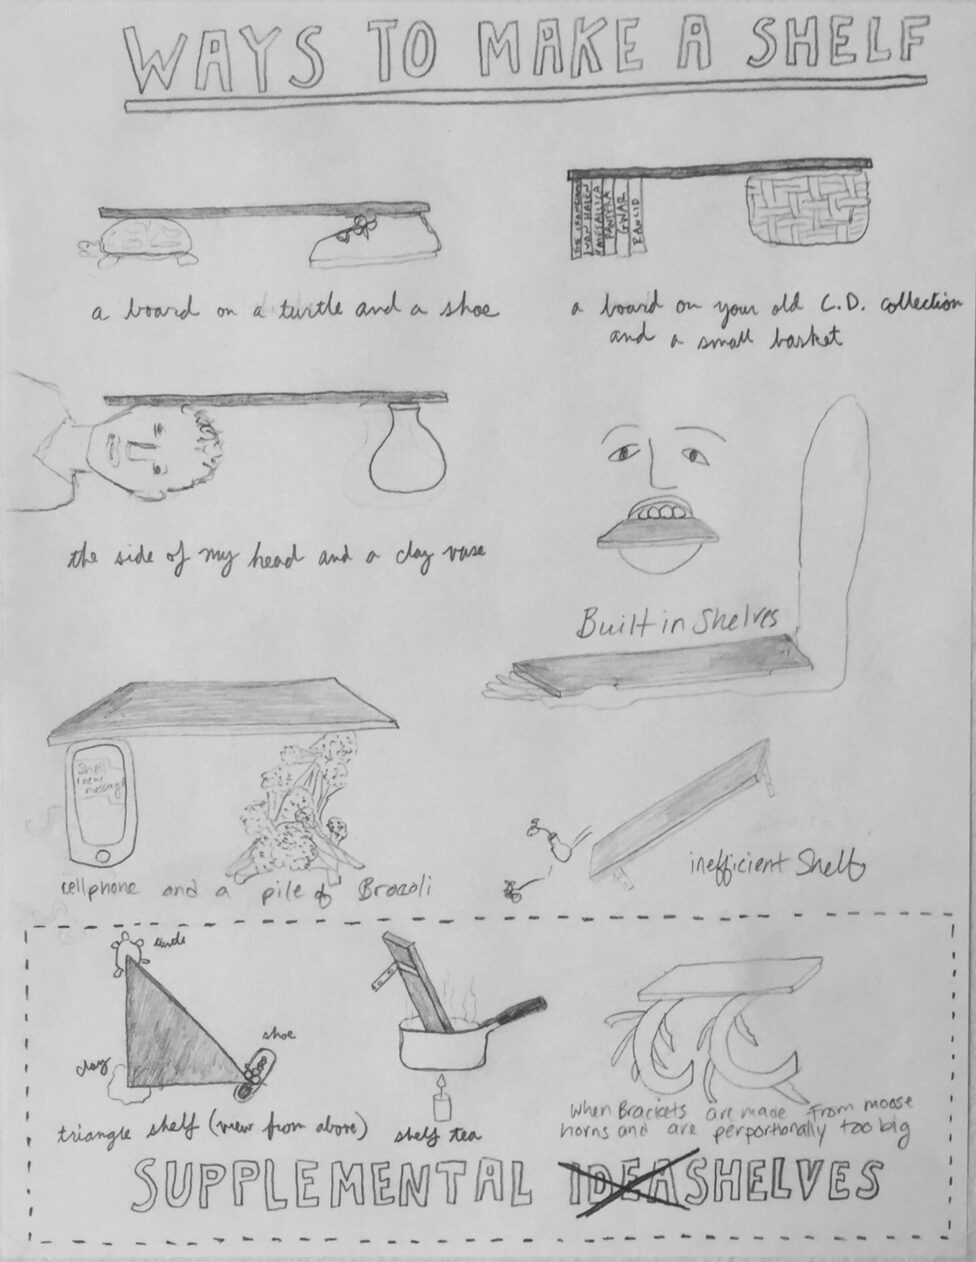 WAYS TO MAKE A SHELF
VAN HALEN
METALLICA
PANTERA
GWAR
RANCID
a board on a turtle and a shoe
a board on your old C.D. collection
and a small basket
the side of my head and a clay vase
Built in Shelves
Shelf
1 new
message
cellphone and a pile of Brocoli
inefficient Shelf
shoe
clay
triangle shelf (view from above)
shelf tea
When Brackets are made from moose
horns and are perportionally too big
SUPPLEMENTAL IDEA SHELVES